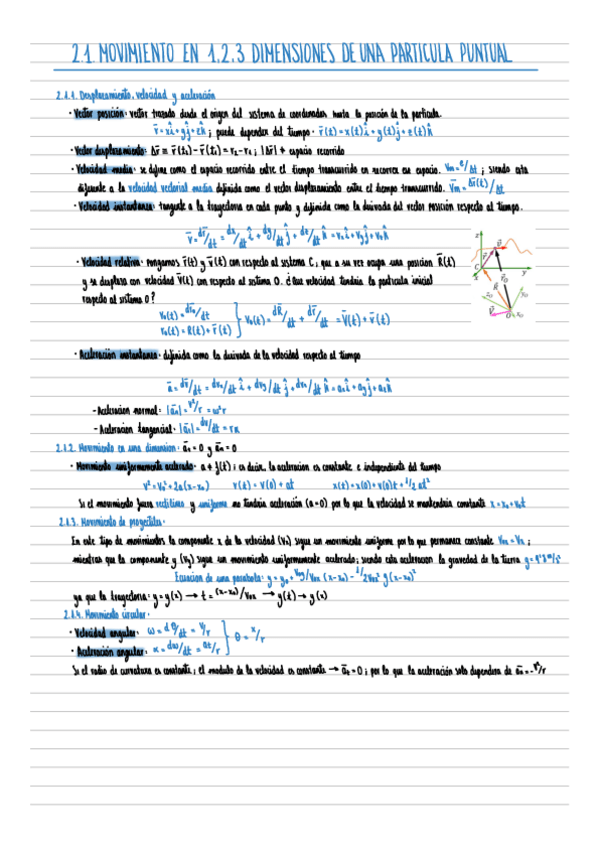 2.1. MOVIMIENTO EN 1,2,3 DIMENSIONES DE UNA PARTICULA PUNTUAL
2.1.1. Desplazamiento, velocidad y aceleración
· Vector posición: vector trazado desde el origen del sistema de coordenadas hasta la posición de la partícula.
r̄ = xî + yĵ + zk̂ ; puede depender del tiempo · r̄(t) = x(t)î + y(t)ĵ + z(t)k̂
· Vector desplazamiento: Δr̄ ≡ r̄(t₂) - r̄(t₁) = r₂ - r₁ ; |Δr̄| ≠ espacio recorrido
· Velocidad media: se define como el espacio recorrido entre el tiempo transcurrido en recorrer ese espacio. Vm = e/Δt ; siendo esta
diferente a la velocidad vectorial media definida como el vector desplazamiento entre el tiempo transcurrido. V̄m = Δr̄(t)/Δt
· Velocidad instantánea: tangente a la trayectoria en cada punto y definida como la derivada del vector posición respecto al tiempo.
v̄ = dr̄/dt = dx/dt î + dy/dt ĵ + dz/dt k̂ = vₓî + vyĵ + vzk̂
· Velocidad relativa: pongamos r̄(t) y v̄(t) con respecto al sistema C; que a su vez ocupa una posición R̄(t)
y se desplaza con velocidad V̄(t) con respecto al sistema O. ¿Que velocidad tendría la partícula inicial
respecto al sistema O?
V₀(t) = dr̄₀/dt
r₀(t) = R̄(t) + r̄(t) } V₀(t) = dR̄/dt + dr̄/dt = V̄(t) + v̄(t)
· Aceleración instantánea: definida como la derivada de la velocidad respecto al tiempo
ā = dv̄/dt = dvₓ/dt î + dvy/dt ĵ + dvz/dt k̂ = aₓî + ayĵ + azk̂
- Aceleración normal: |ān| = v²/r = ω²r
- Aceleración tangencial: |āt| = dv/dt = rα
2.1.2. Movimiento en una dimension: ān = 0 y
· Movimiento uniformemente acelerado: a ≠ f(t) ; es decir, la aceleración es constante e independiente del tiempo
v² = v₀² + 2a(x-x₀) v(t) = v(0) + at x(t) = x(0) + v(0)t + 1/2 at²
Si el movimiento fuera rectilíneo y uniforme no tendría aceleración (a=0) por lo que la velocidad se mantendría constante x = x₀ + v₀t
2.1.3. Movimiento de proyectiles.
En este tipo de movimientos la componente x de la velocidad (vₓ) sigue un movimiento uniforme por lo que permanece constante v₀ₓ = vₓ ;
mientras que la componente y (vy) sigue un movimiento uniformemente acelerado; siendo esta aceleración la gravedad de la tierra g = 9'8 m/s²
Ecuación de una parábola: y = y₀ + v₀y/v₀ₓ (x-x₀) - 1/2v₀ₓ² g(x-x₀)²
ya que la trayectoria: y = y(x) → t = (x-x₀)/v₀ₓ → y(t) → y(x)
2.1.4. Movimiento circular.
· Velocidad angular: ω = dθ/dt = v/r
· Aceleración angular: α = dω/dt = at/r } θ = x/r
Si el radio de curvatura es constante; el modulo de la velocidad es constante → āt = 0 ; por lo que la aceleración solo dependera de ān = - v²/r